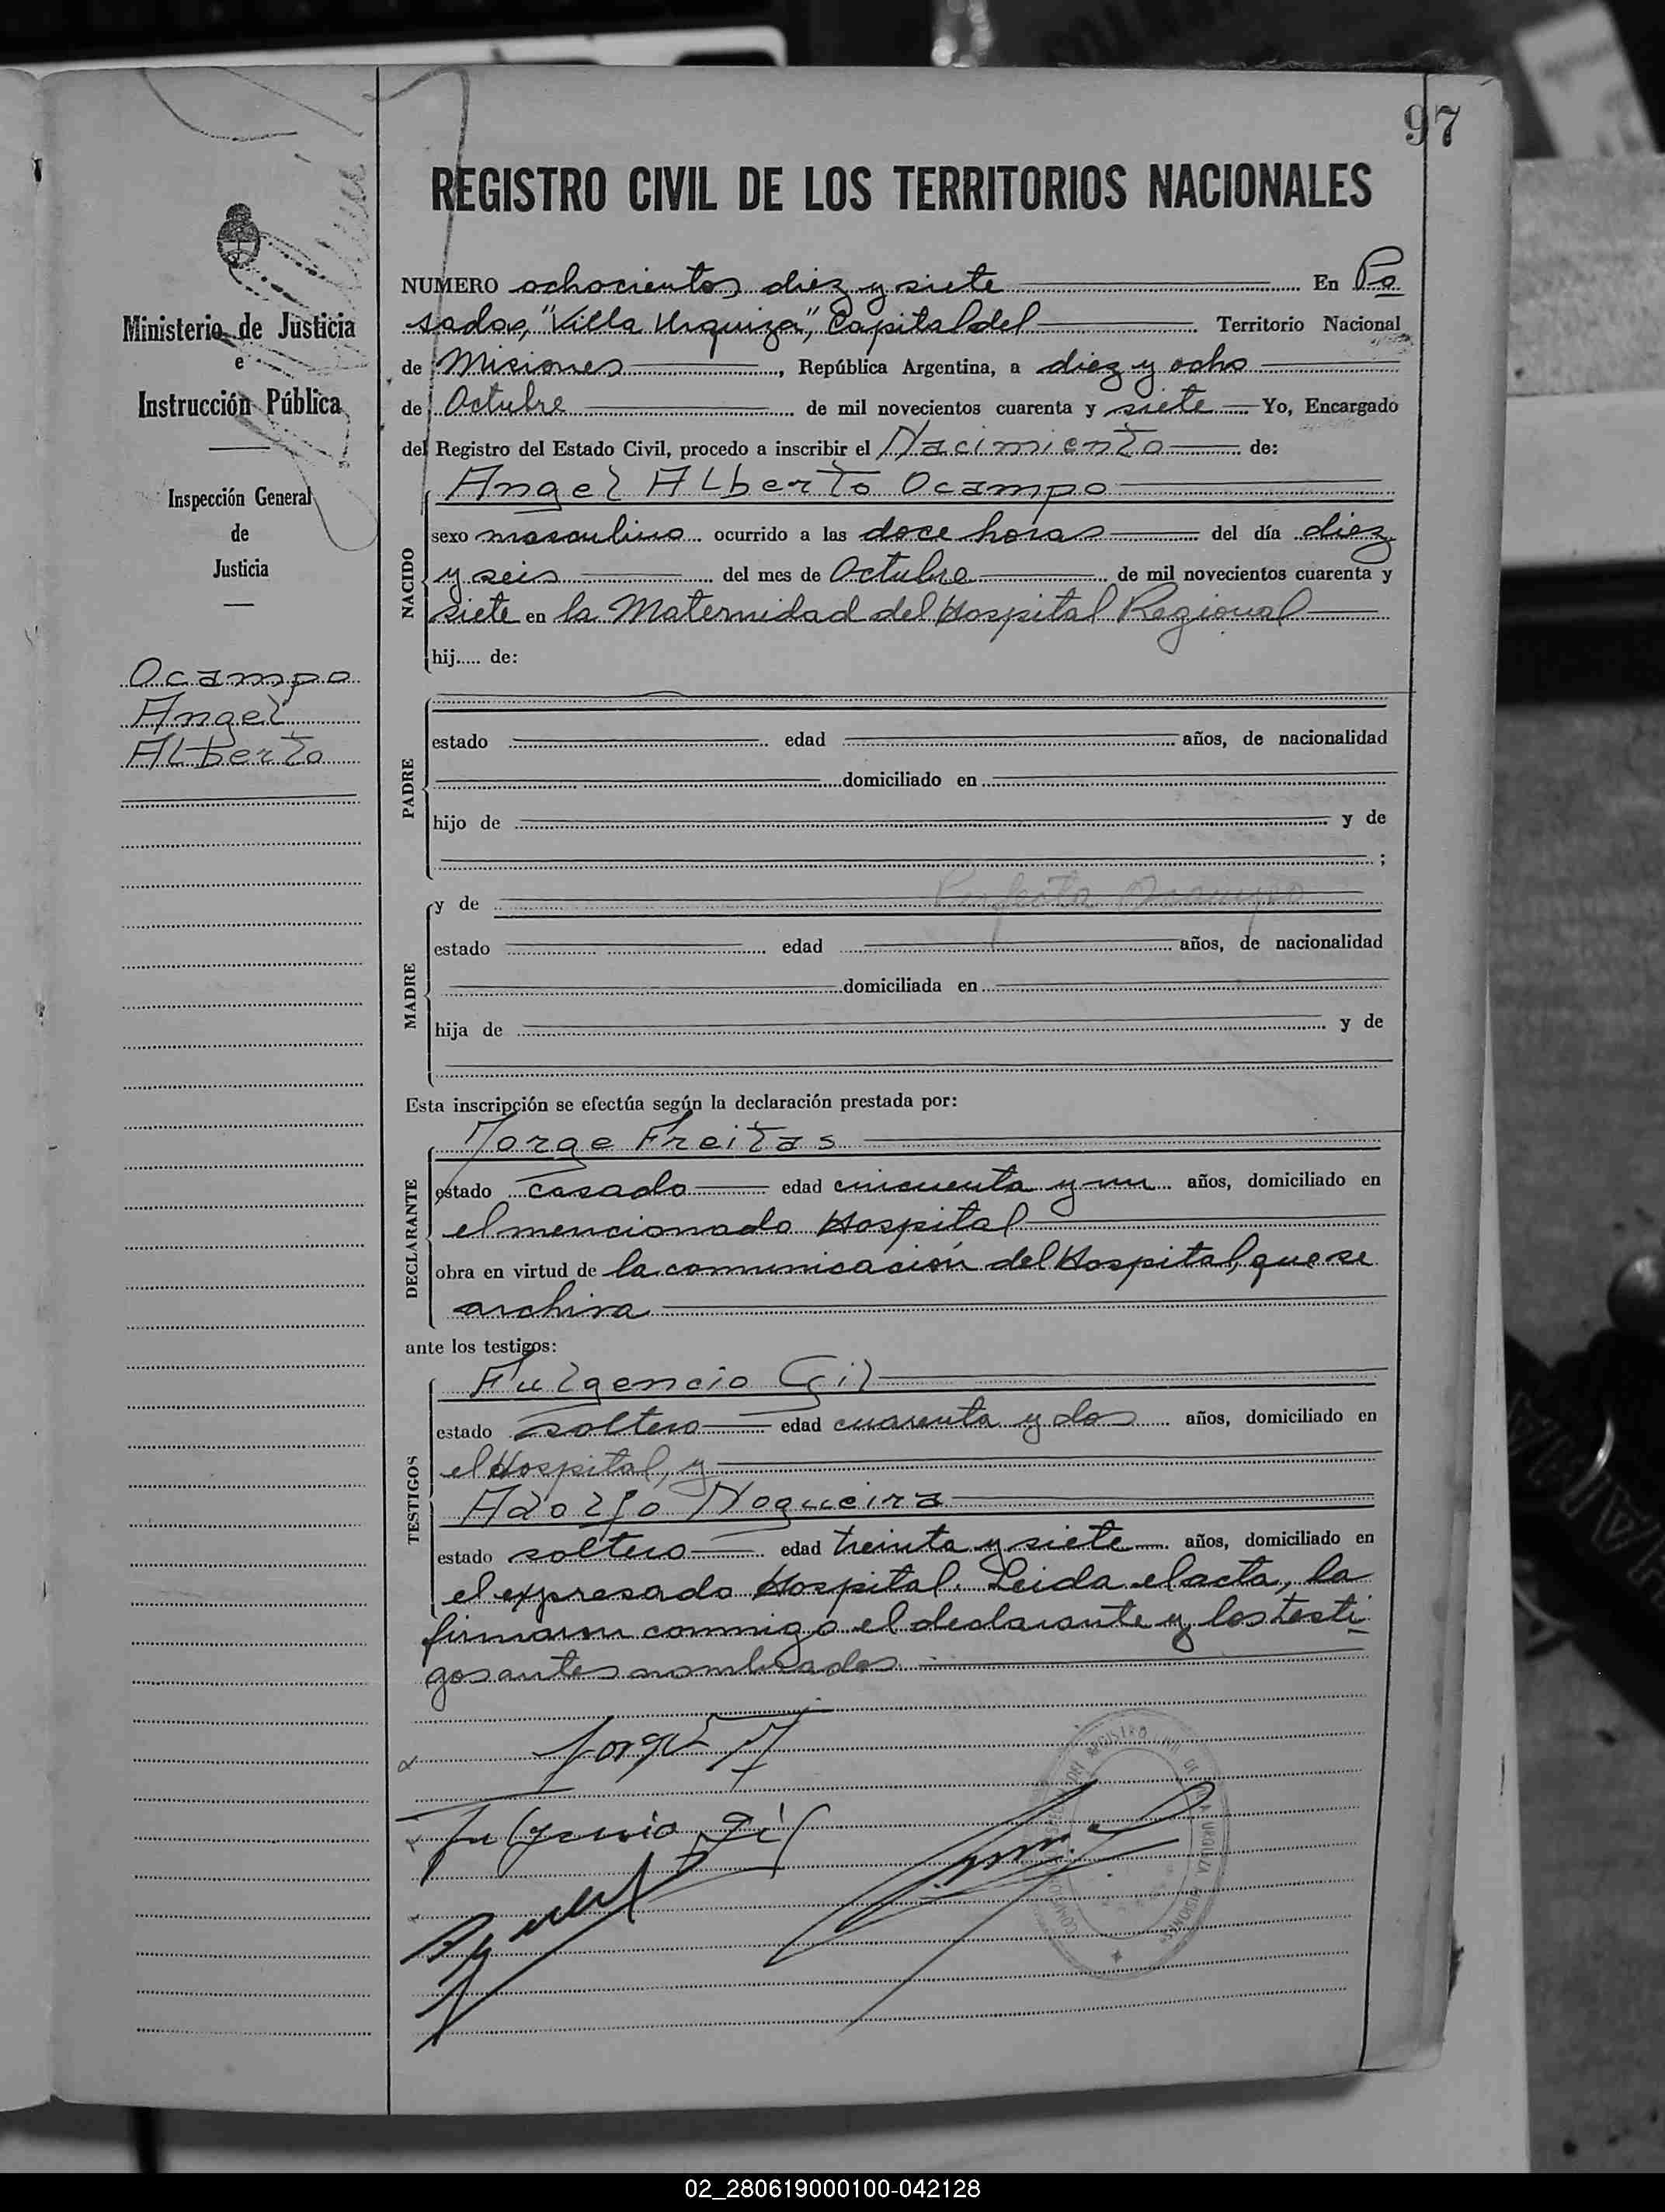 97
REGISTRO CIVIL DE LOS TERRITORIOS NACIONALES
Ministerio de Justicia
e
Instrucción Pública
Inspección General
de
Justicia
Ocampo
Angel
Alberto
NUMERO ochocientos diez y siete En Po
sadas, "Villa Urquiza", Capital del Territorio Nacional
de Misiones, República Argentina, a diez y ocho
de Octubre de mil novecientos cuarenta y siete Yo, Encargado
del Registro del Estado Civil, procedo a inscribir el Nacimiento de:
Angel Alberto Ocampo
NACIDO
sexo masculino ocurrido a las doce horas del día diez
y seis del mes de Octubre de mil novecientos cuarenta y
siete en la Maternidad del Hospital Regional
hij..... de:
PADRE
estado edad años, de nacionalidad
domiciliado en
hijo de y de
;
MADRE
y de Perfecta Ocampo
estado edad años, de nacionalidad
domiciliada en
hija de y de
Esta inscripción se efectúa según la declaración prestada por:
DECLARANTE
Jorge Freitas
estado casado edad cincuenta y un años, domiciliado en
el mencionado Hospital
obra en virtud de la comunicación del Hospital, que se
archiva
ante los testigos:
TESTIGOS
Fulgencio Gil
estado soltero edad cuarenta y dos años, domiciliado en
el Hospital, y
Adolfo Nogueira
estado soltero edad treinta y siete años, domiciliado en
el expresado Hospital. Leida el acta, la
firmaron conmigo el declarante y los testi
gos antes nombrados
Jorge F
Fulgencio Gil
DEL REGISTRO CIVIL DE VILLA URQUIZA MISIONES
02_280619000100-042128